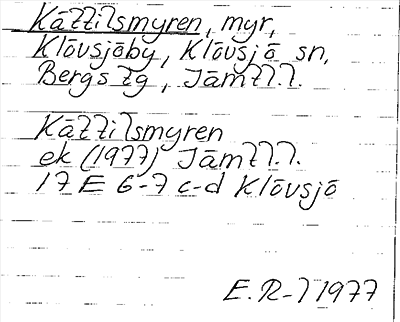 Kättilsmyren, myr,
Klövsjöby, Klövsjö sn,
Bergs tg, Jämtl.l.
Kättilsmyren
ek (1977) Jämtl.l.
17 E 6-7 c-d Klövsjö
E.R-l 1977